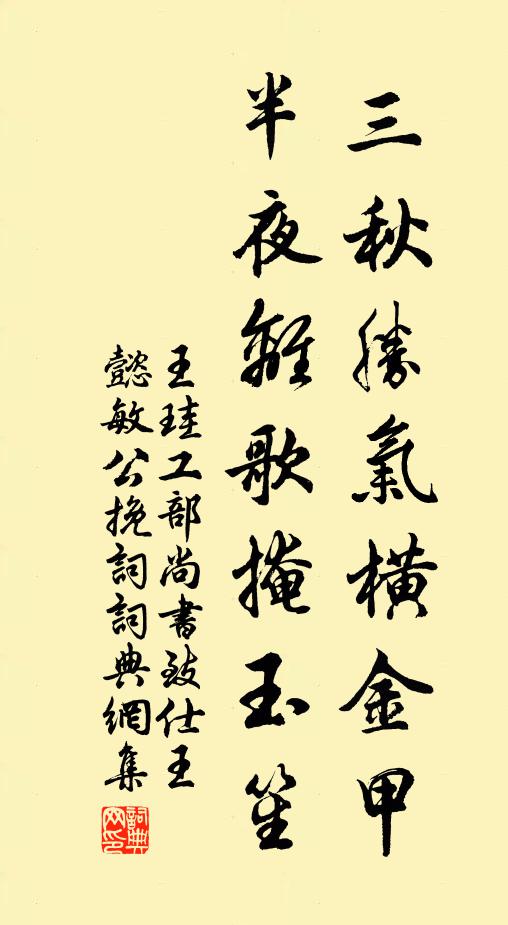 三秋勝氣橫金甲
半夜離歌掩玉笙
王珪工部尚書致仕王
懿敏公挽詞詞典網集
詞典網印